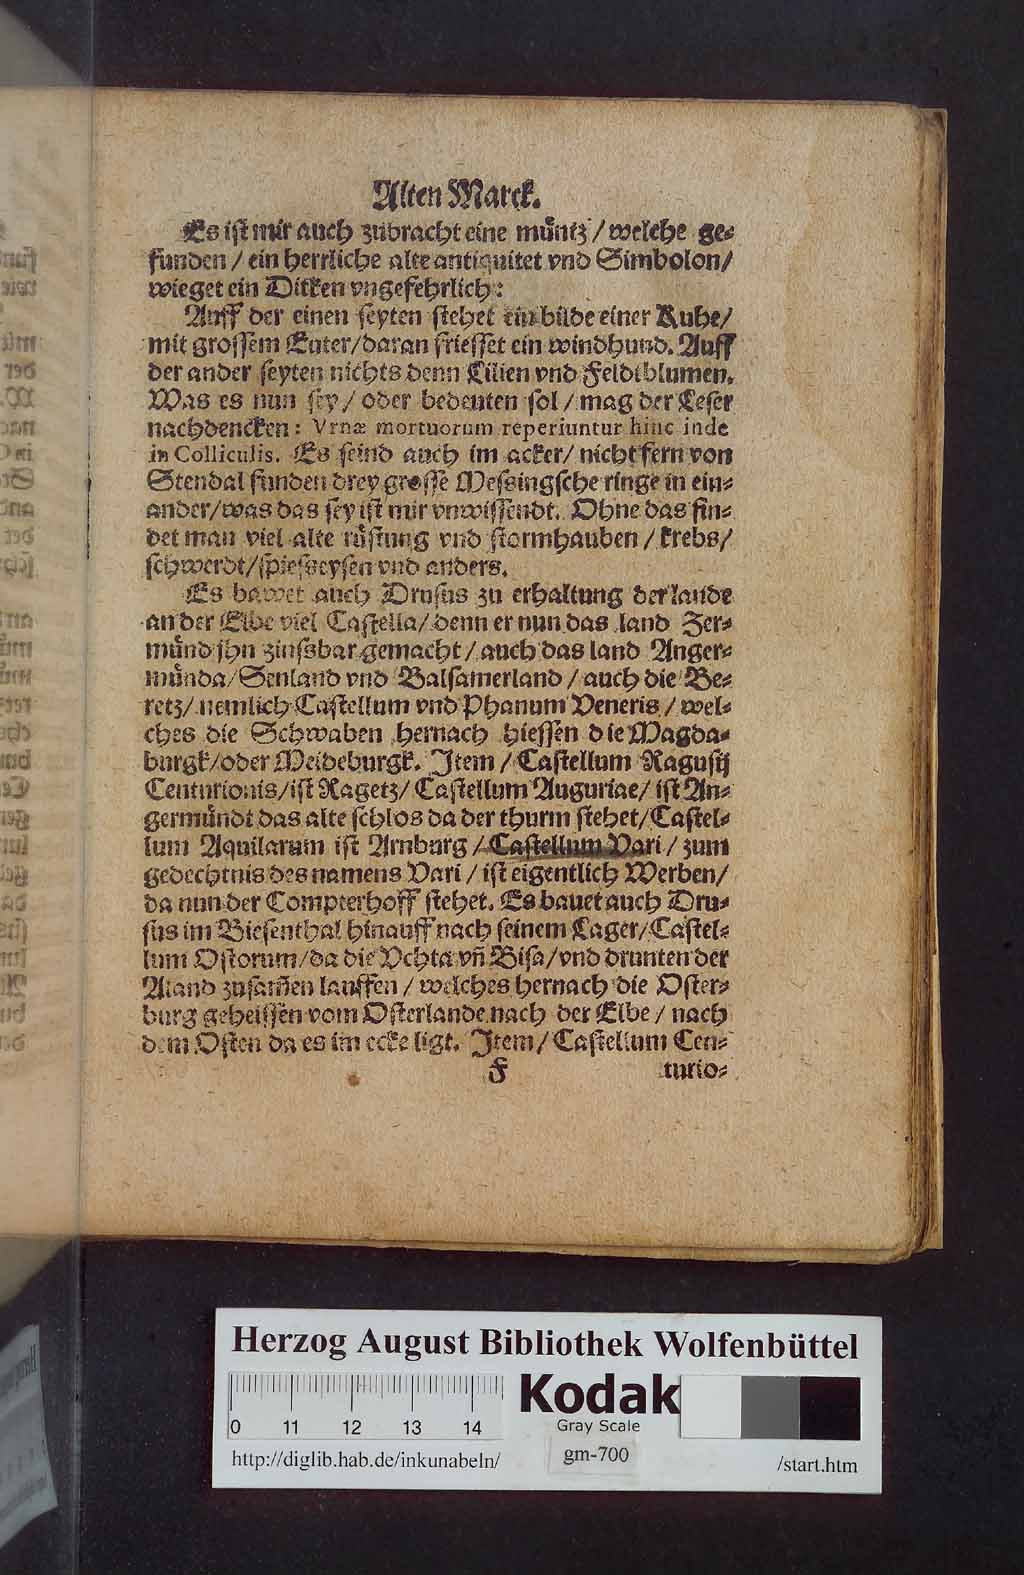 Alten Marck.
Es ist mir auch zubracht eine müntz / welche ge-
funden / ein herrliche alte antiquitet vnd Simbolon/
wieget ein Ditken vngefehrlich:
Auff der einen seyten stehet ein bilde einer Kuhe/
mit grossem Euter/daran friesset ein windhund. Auff
der ander seyten nichts denn Lilien vnd Feldtblumen.
Was es nun sey / oder bedeuten sol / mag der Leser
nachdencken: Vrnæ mortuorum reperiuntur hinc inde
in Colliculis. Es seind auch im acker/ nicht fern von
Stendal funden drey grosse Messingsche ringe in ein-
ander/was das sey ist mir vnwissendt. Ohne das fin-
det man viel alte rüstung vnd stormhauben / krebs/
schwerdt/spiesseysen vnd anders.
Es bawet auch Drusus zu erhaltung der lande
an der Elbe viel Castella/ denn er nun das land Zer-
münd jhn zinssbar gemacht / auch das land Anger-
münda/Senland vnd Balsamerland / auch die Be-
retz/ nemlich Castellum vnd Phanum Veneris / wel-
ches die Schwaben hernach hiessen die Magda-
burgk/oder Meideburgk. Item / Castellum Ragustj
Centurionis/ist Ragetz/ Castellum Auguriae/ ist An-
germündt das alte schlos da der thurm stehet/Castel-
lum Aquilarum ist Arnburg / Castellum Vari / zum
gedechtnis des namens Vari / ist eigentlich Werben/
da nun der Compterhoff stehet. Es bauet auch Dru-
sus im Biesenthal hinauff nach seinem Lager/Castel-
lum Ostorum/da die Vchta vñ Bisa/vnd drunten der
Aland zusam̃en lauffen / welches hernach die Oster-
burg geheissen vom Osterlande nach der Elbe / nach
dem Osten da es im ecke ligt. Item/ Castellum Cen-
F turio-
Herzog August Bibliothek Wolfenbüttel
0 11 12 13 14
Kodak
Gray Scale
http://diglib.hab.de/inkunabeln/ gm-700 /start.htm